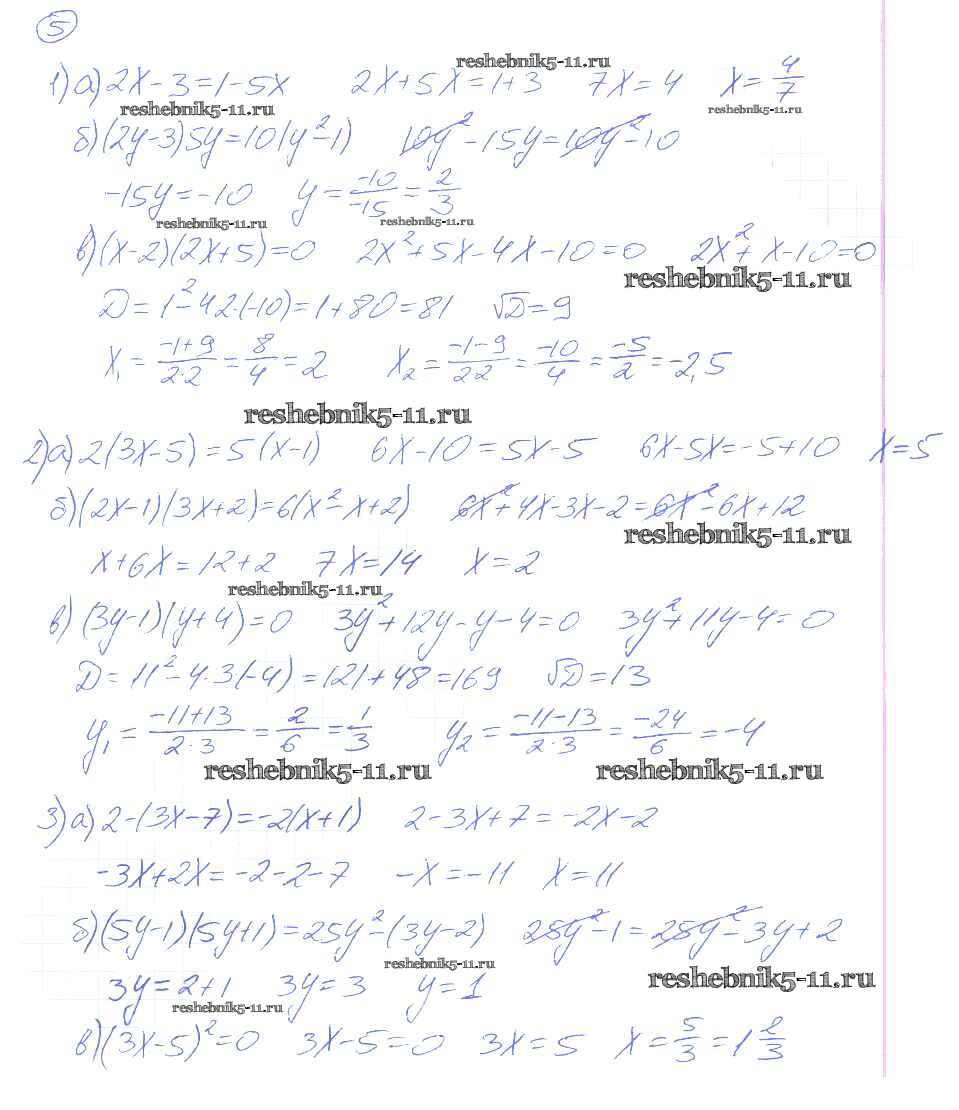 5
reshebnik5-11.ru
1) а) 2x-3=1-5x 2x+5x=1+3 7x=4 x=4/7
reshebnik5-11.ru reshebnik5-11.ru
б) (2y-3)5y=10(y²-1) 10y²-15y=10y²-10
-15y=-10 y=-10/-15=2/3
reshebnik5-11.ru reshebnik5-11.ru
в) (x-2)(2x+5)=0 2x²+5x-4x-10=0 2x²+x-10=0
reshebnik5-11.ru
D=1²-4·2·(-10)=1+80=81 √D=9
x₁=-1+9/2·2=8/4=2 x₂=-1-9/2·2=-10/4=-5/2=-2,5
reshebnik5-11.ru
2) а) 2(3x-5)=5(x-1) 6x-10=5x-5 6x-5x=-5+10 x=5
б) (2x-1)(3x+2)=6(x²-x+2) 6x²+4x-3x-2=6x²-6x+12
reshebnik5-11.ru
x+6x=12+2 7x=14 x=2
reshebnik5-11.ru
в) (3y-1)(y+4)=0 3y²+12y-y-4=0 3y²+11y-4=0
D=11²-4·3·(-4)=121+48=169 √D=13
y₁=-11+13/2·3=2/6=1/3 y₂=-11-13/2·3=-24/6=-4
reshebnik5-11.ru reshebnik5-11.ru
3) а) 2-(3x-7)=-2(x+1) 2-3x+7=-2x-2
-3x+2x=-2-2-7 -x=-11 x=11
б) (5y-1)(5y+1)=25y²-(3y-2) 25y²-1=25y²-3y+2
reshebnik5-11.ru reshebnik5-11.ru
3y=2+1 3y=3 y=1
reshebnik5-11.ru
в) (3x-5)²=0 3x-5=0 3x=5 x=5/3=1 2/3